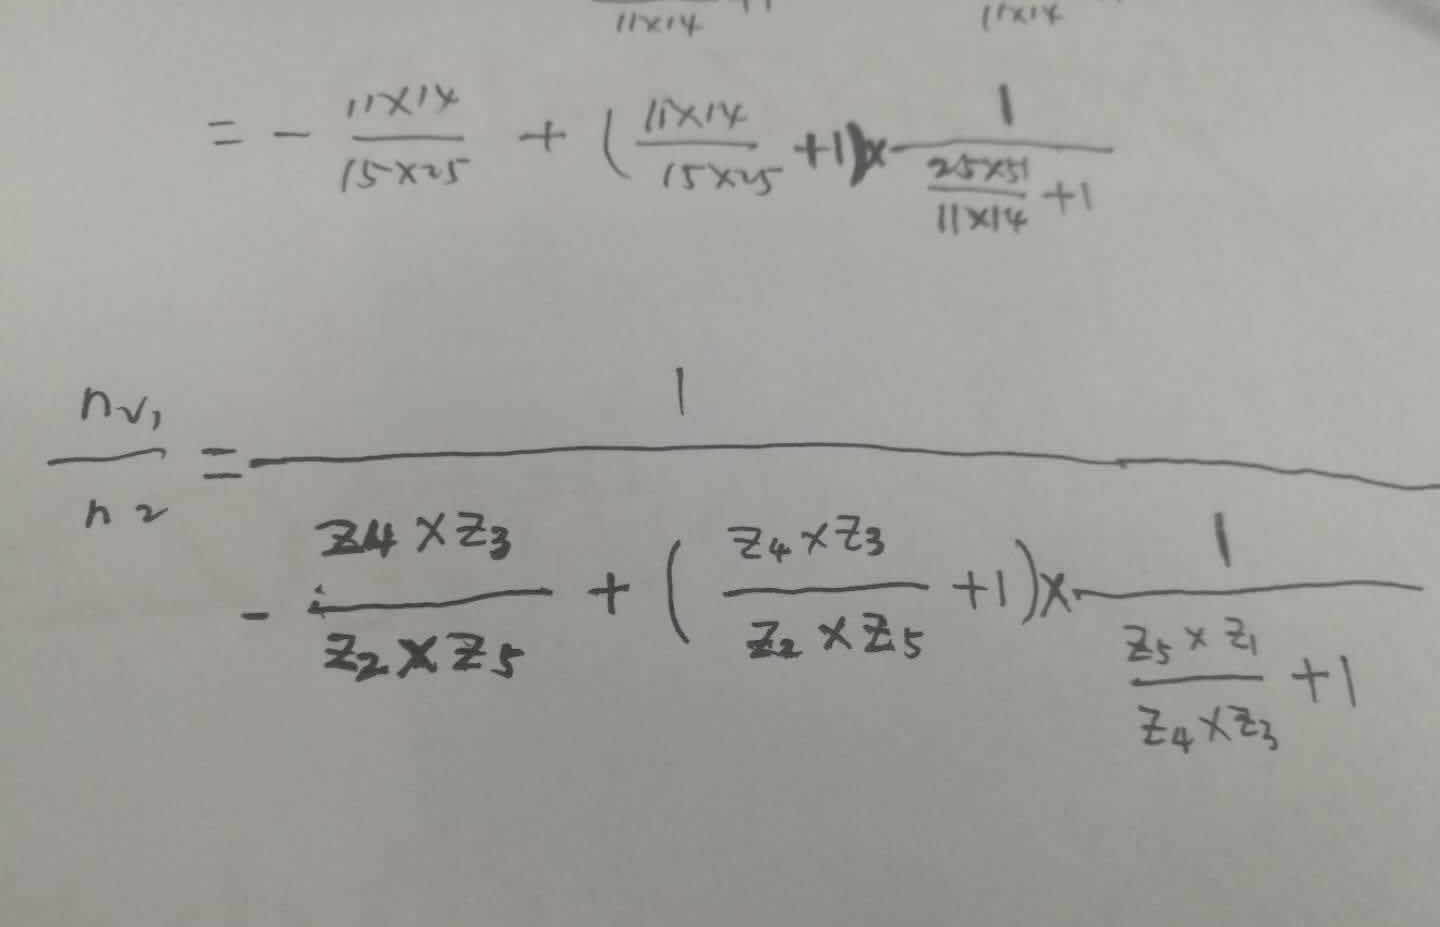 11×14 11×14
= - 11×14 / 15×25 + ( 11×14 / 15×25 +1)× 1 / ( 25×51 / 11×14 +1 )
nv1 / n2 = 1 / ( - z4×z3 / z2×z5 + ( z4×z3 / z2×z5 +1)× 1 / ( z5×z1 / z4×z3 +1 ) )